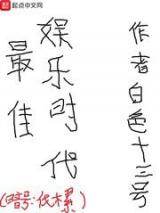 起点中文网
最佳
娱乐时代
作者白色十三号
(暗号:伏累)